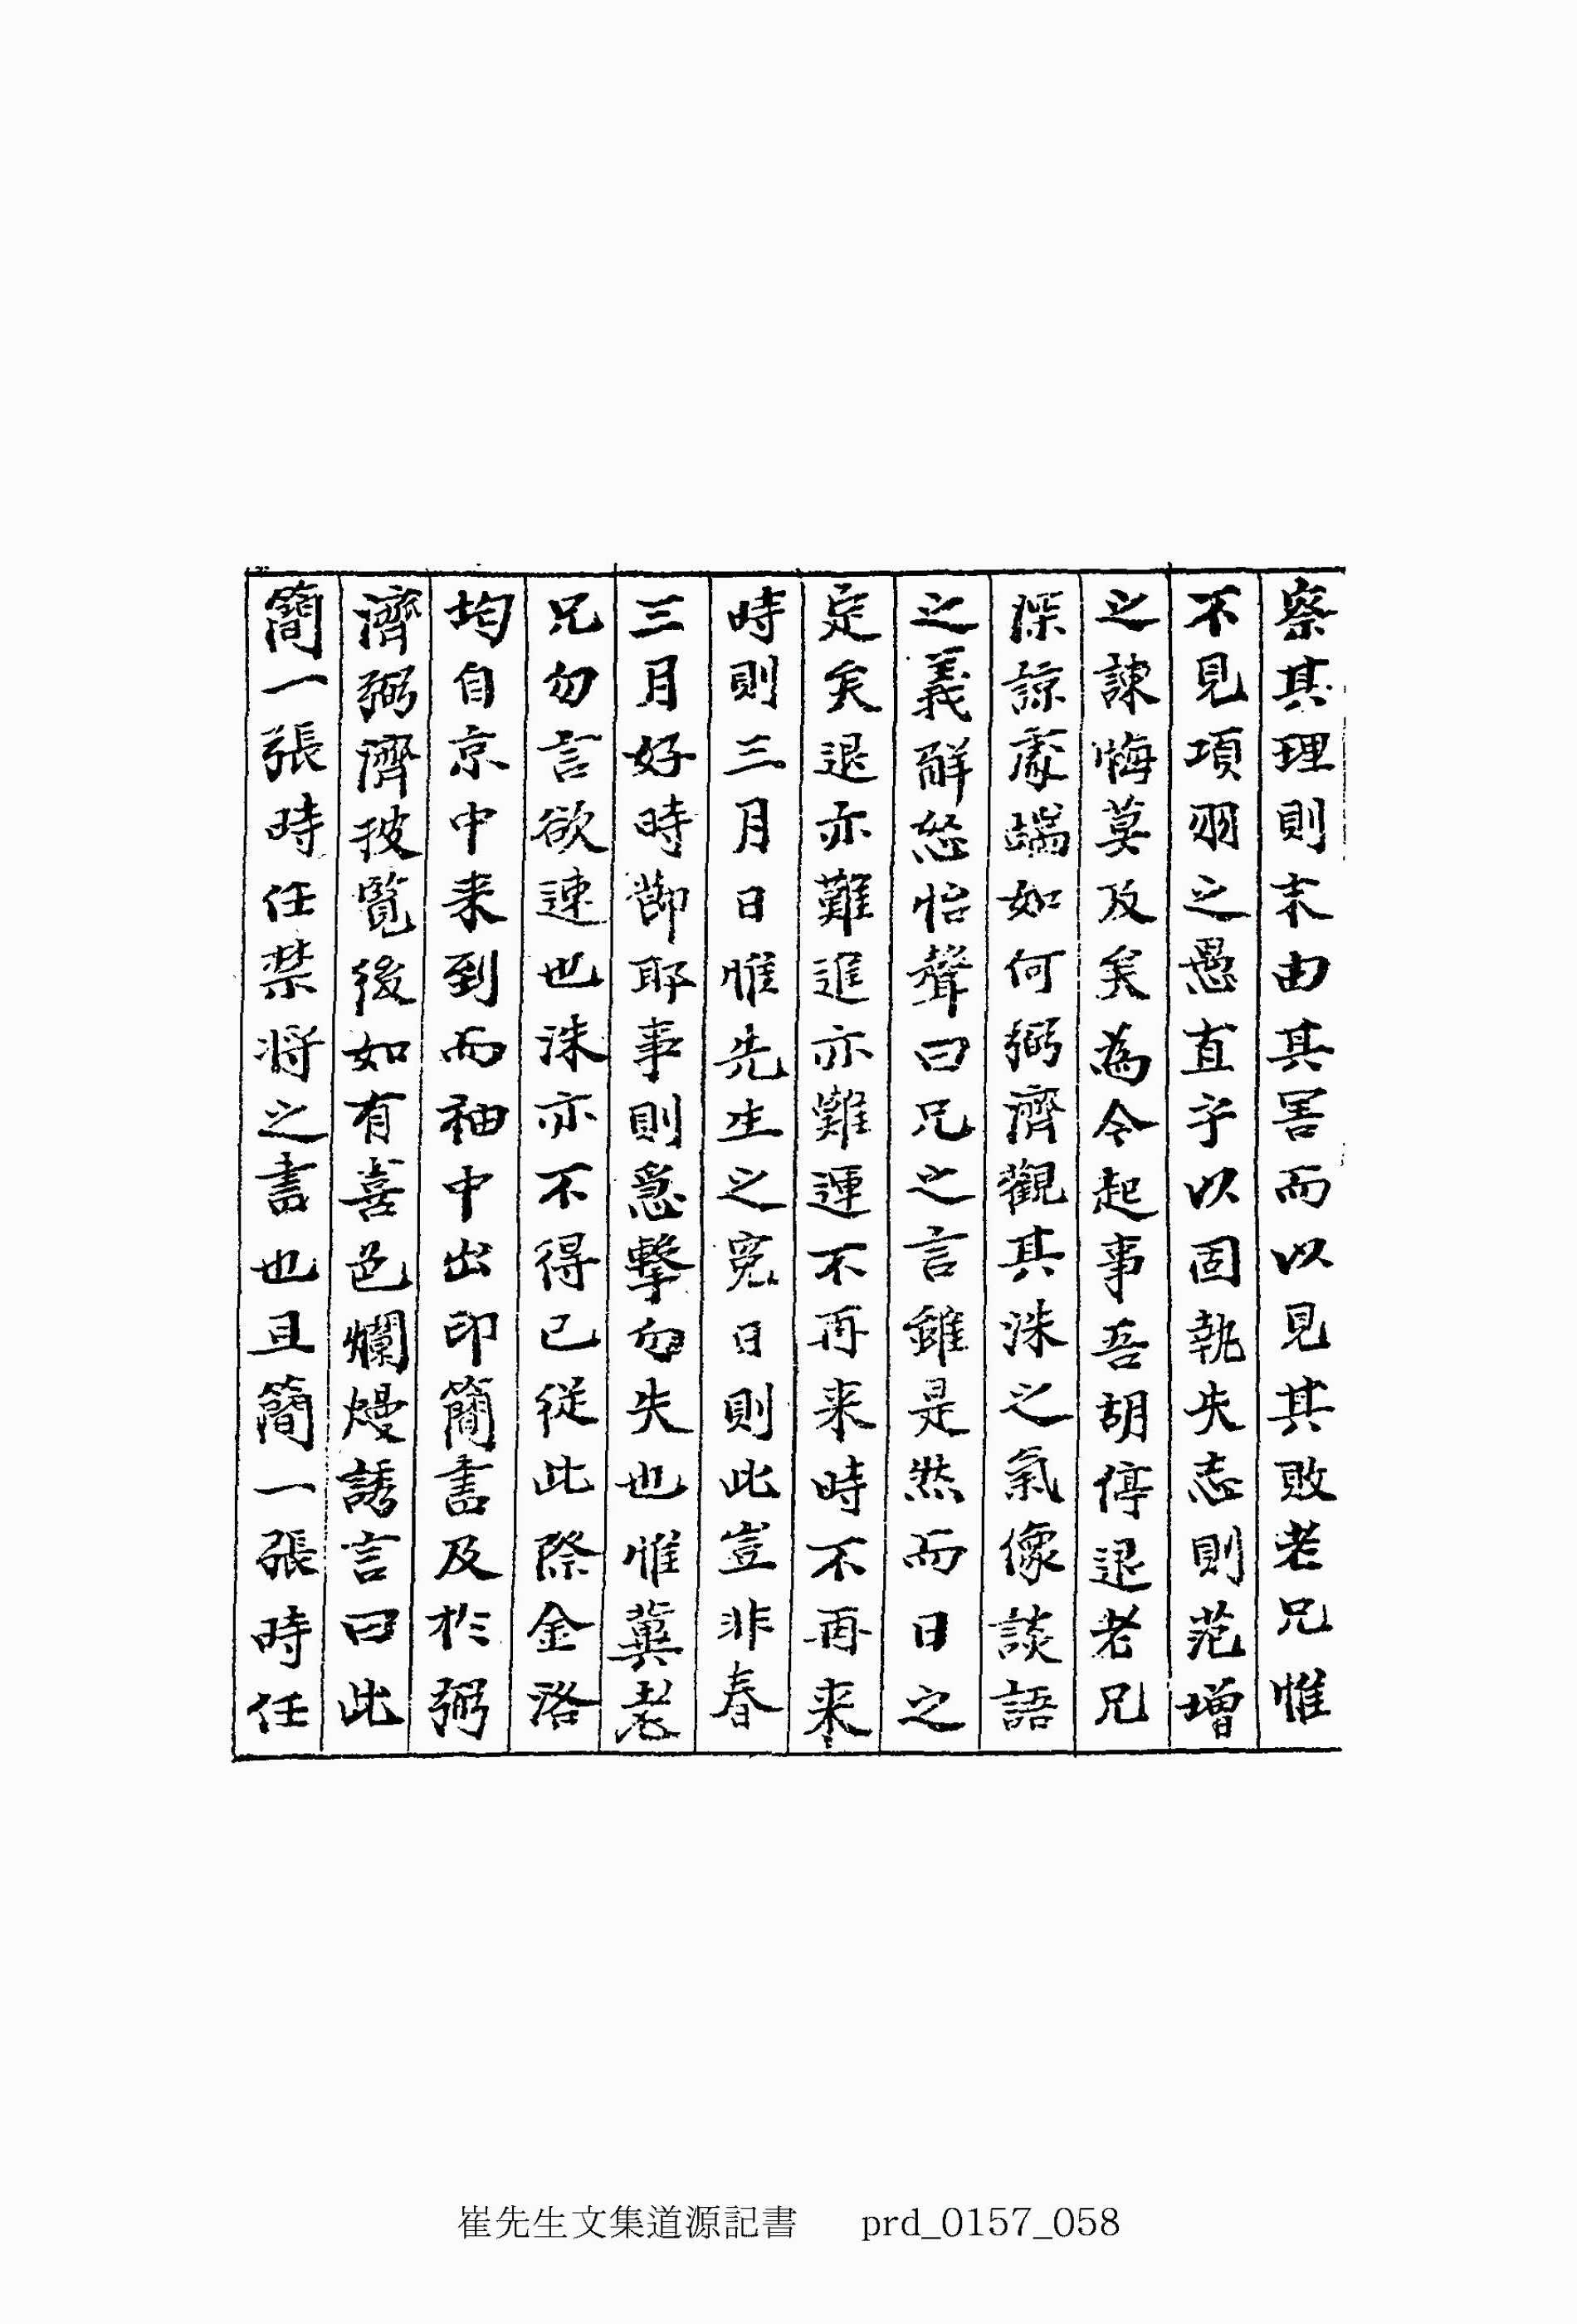 察其理則末由其害而以見其敗老兄惟
不見項羽之愚直乎以固執失志則范增
之諫悔莫及矣為今起事吾胡停退老兄
深諒處端如何弼濟觀其洙之氣像談語
之義解怒怡聲曰兄之言雖是然而日之
定矣退亦難進亦難運不再来時不再来
時則三月日惟先生之冤日則此豈非春
三月好時節耶事則急擊勿失也惟冀老
兄勿言欲速也洙亦不得已從此際金洛
均自京中来到而袖中出印簡書及於弼
濟弼濟披覧後如有喜色爛熳誘言曰此
簡一張時任禁將之書也且簡一張時任
崔先生文集道源記書 prd_0157_058